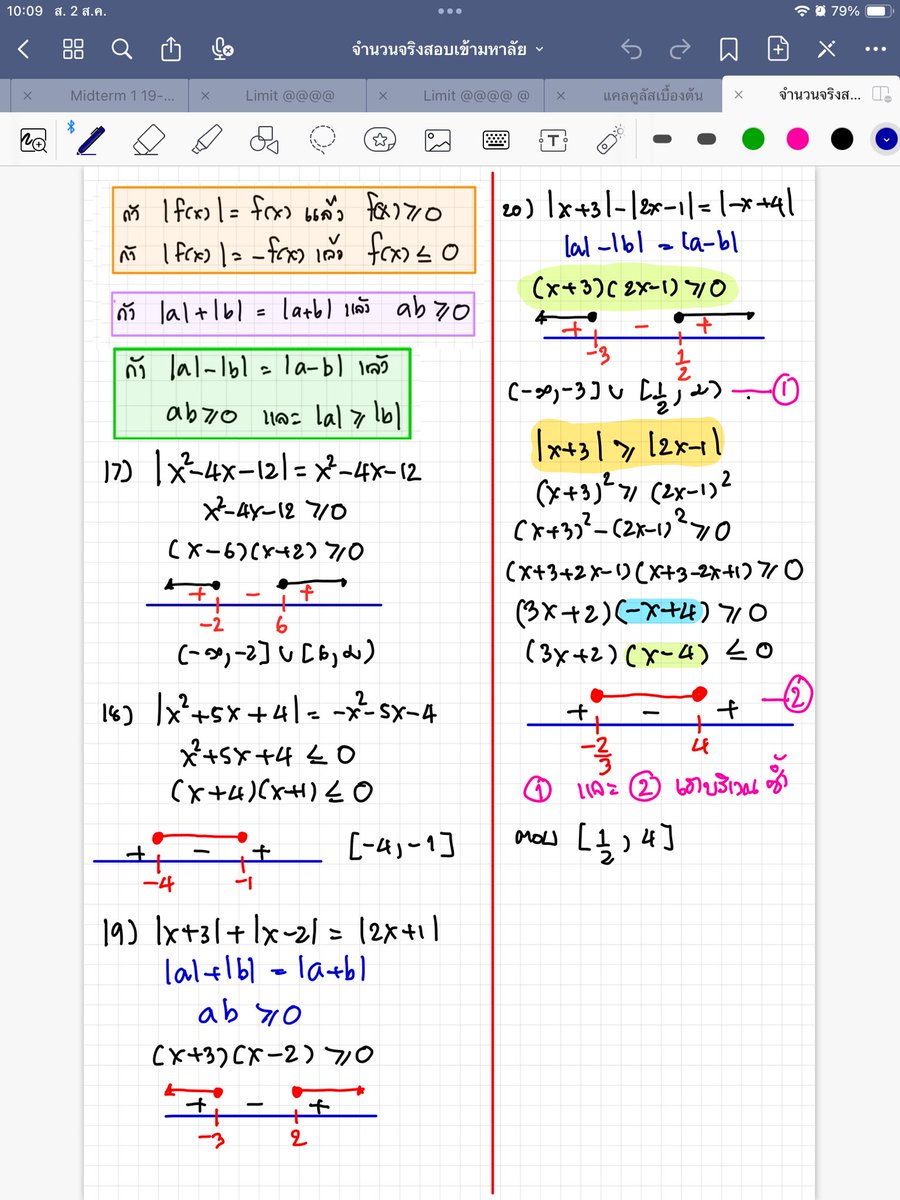 10:09 ส. 2 ส.ค.
79%
จำนวนจริงสอบเข้ามหาลัย
Midterm 1 19-...
Limit @@@@
Limit @@@@ @
แคลคูลัสเบื้องต้น
จำนวนจริงส...
ถ้า |f(x)| = f(x) แล้ว f(x) ≥ 0
ถ้า |f(x)| = -f(x) แล้ว f(x) ≤ 0
ถ้า |a|+|b| = |a+b| แล้ว ab ≥ 0
ถ้า |a|-|b| = |a-b| แล้ว
ab ≥ 0 และ |a| ≥ |b|
17) |x²-4x-12| = x²-4x-12
x²-4x-12 ≥ 0
(x-6)(x+2) ≥ 0
+ - +
-2 6
(-∞,-2] ∪ [6,∞)
18) |x²+5x+4| = -x²-5x-4
x²+5x+4 ≤ 0
(x+4)(x+1) ≤ 0
+ - + [-4,-1]
-4 -1
19) |x+3|+|x-2| = |2x+1|
|a|+|b| = |a+b|
ab ≥ 0
(x+3)(x-2) ≥ 0
+ - +
-3 2
20) |x+3|-|2x-1| = |-x+4|
|a|-|b| = |a-b|
(x+3)(2x-1) ≥ 0
+ - +
-3 1/2
(-∞,-3] ∪ [1/2,∞) — ①
|x+3| ≥ |2x-1|
(x+3)² ≥ (2x-1)²
(x+3)²-(2x-1)² ≥ 0
(x+3+2x-1)(x+3-2x+1) ≥ 0
(3x+2)(-x+4) ≥ 0
(3x+2)(x-4) ≤ 0
+ - + — ②
-2/3 4
① และ ② เอาบริเวณซ้ำ
ตอบ [1/2, 4]